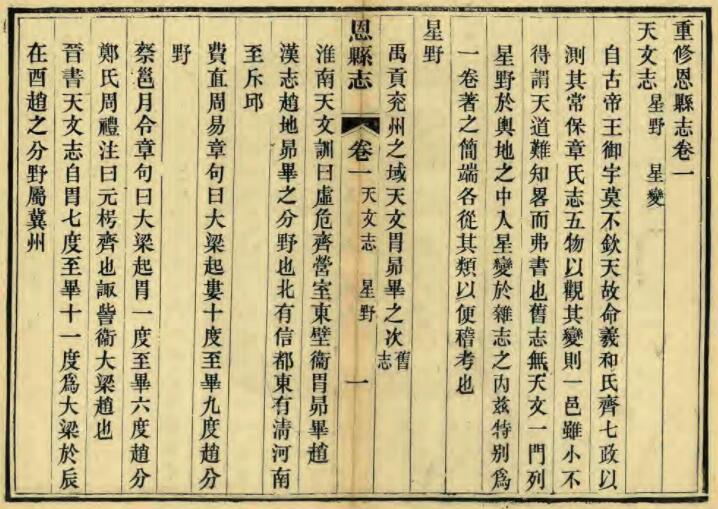 重修恩縣志卷一
天文志 星野 星變
自古帝王御宇莫不欽天故命羲和氏齊七政以
測其常保章氏志五物以觀其變則一邑雖小不
得謂天道難知畧而弗書也舊志無天文一門列
星野於輿地之中入星變於雜志之内兹特別爲
一卷著之簡端各從其類以便稽考也
星野
禹貢兖州之域天文胃昴畢之次舊志
恩縣志 卷一 天文志 星野 一
淮南天文訓曰虛危齊營室東壁衞胃昴畢趙
漢志趙地昴畢之分野也北有信都東有淸河南
至斥邱
費直周易章句曰大梁起婁十度至畢九度趙分
野
祭邕月令章句曰大梁起胃一度至畢六度趙分
鄭氏周禮注曰元枵齊也諏訾衞大梁趙也
晉書天文志自胃七度至畢十一度爲大梁於辰
在酉趙之分野屬冀州